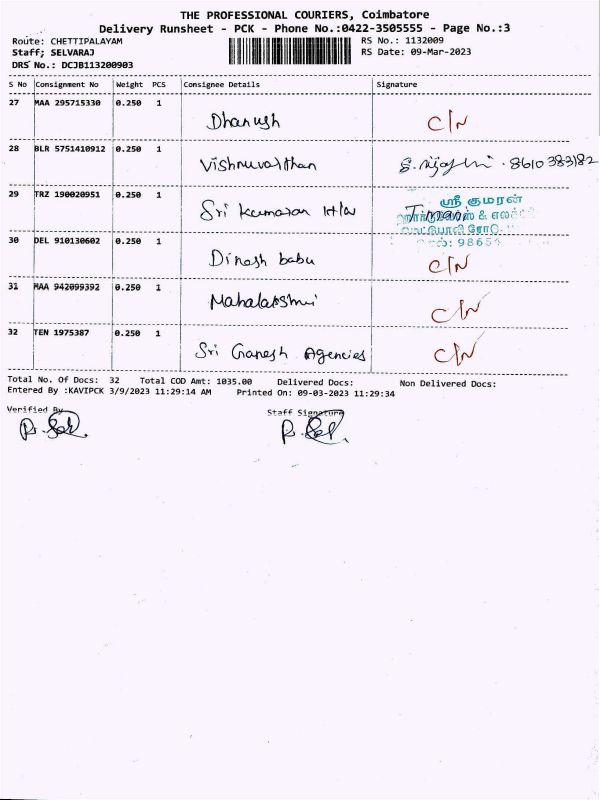 THE PROFESSIONAL COURIERS, Coimbatore
Delivery Runsheet - PCK - Phone No.:0422-3505555 - Page No.:3
Route: CHETTIPALAYAM
RS No.: 1132009
Staff; SELVARAJ
RS Date: 09-Mar-2023
DRS No.: DCJB113200903
S No Consignment No Weight PCS Consignee Details Signature
27 MAA 295715330 0.250 1 Dhanush C/N
28 BLR 5751410912 0.250 1 Vishnuvarthan 8610383182
29 TRZ 190020951 0.250 1 Sri Kumaran H/W
ஸ்ரீ குமரன்
30 DEL 910130602 0.250 1 Dinesh babu C/N
31 MAA 942099392 0.250 1 Mahalakshmi C/N
32 TEN 1975387 0.250 1 Sri Ganesh Agencies C/N
Total No. Of Docs: 32 Total COD Amt: 1035.00 Delivered Docs: Non Delivered Docs:
Entered By :KAVIPCK 3/9/2023 11:29:14 AM Printed On: 09-03-2023 11:29:34
Verified By
Staff Signature